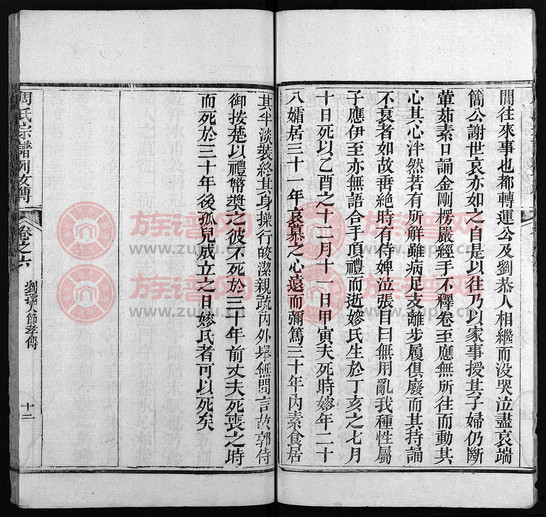 間往來事也都轉運公及劉恭人相繼而沒哭泣盡哀端
簡公謝世哀亦如之自是以往乃以家事授其子婦仍斷
葷茹素日誦金剛楞嚴經手不釋卷至應無所往而動其
心其心泮然若有所解雖病足支離步履俱廢而其持誦
不衰者如故垂絕時有侍婢泣張目曰無用亂我種性屬
子應伊至亦無語合手頂禮而逝嫪氏生於丁亥之七月
十日死以乙酉之十二月十日甲寅夫死時嫪年二十
八孀居三十一年哀慕之心遠而彌篤三十年內素食居
其半淡裝終其身操行皎潔親疏內外堪無間言故郭侍
御按楚以禮幣獎之彼不死於三十年前丈夫死喪之時
而死於三十年後孤兒成立之日嫪氏者可以死矣
周氏宗譜列女傳
卷之六
劉孺人節孝傳
十二
族谱网
www.zupu.cn